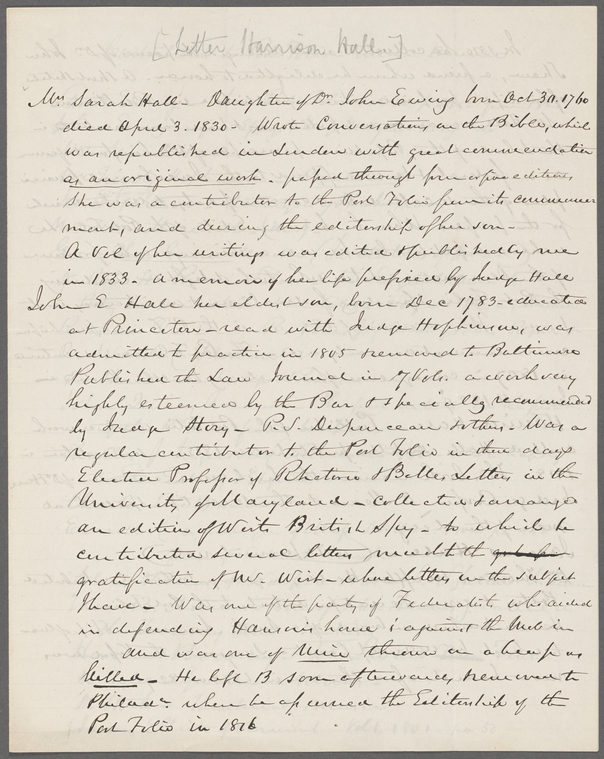 [Letter Harrison Hall]
Mrs Sarah Hall - Daughter of Dr. John Ewing born Oct 30. 1760
died April 3. 1830 - Wrote Conversations on the Bible, which
was republished in London with great commendation
as an original work - passed through four or five editions
She was a contributor to the Port Folio from its commence
ment, and during the editorship of her son -
A Vol of her writings was edited & published by me
in 1833 - a memoir of her life prefixed by Judge Hall
John E Hall her eldest son, born Dec 1783 - educated
at Princeton - read with Judge Hopkinson, was
admitted to practice in 1805 removed to Baltimore
Published the Law Journal in 7 Vols. a work very
highly esteemed by the Bar & specially recommended
by Judge Story - P. S. Duponceau & others - Was a
regular contributor to the Port Folio in those days
Elected Professor of Rhetoric & Belles Letters in the
University of Maryland - collected & arranged
an edition of Wirts British Spy - to which he
contributed several letters much to the
gratification of Mr. Wirt - whose letters on the subject
I have - Was one of the party of Federalists who aided
in defending Hanson's house against the Mob in
and was one of Nine thrown in a heap as
killed - He left B soon afterwards, removed to
Philada. when he assumed the Editorship of the
Port Folio in 1816